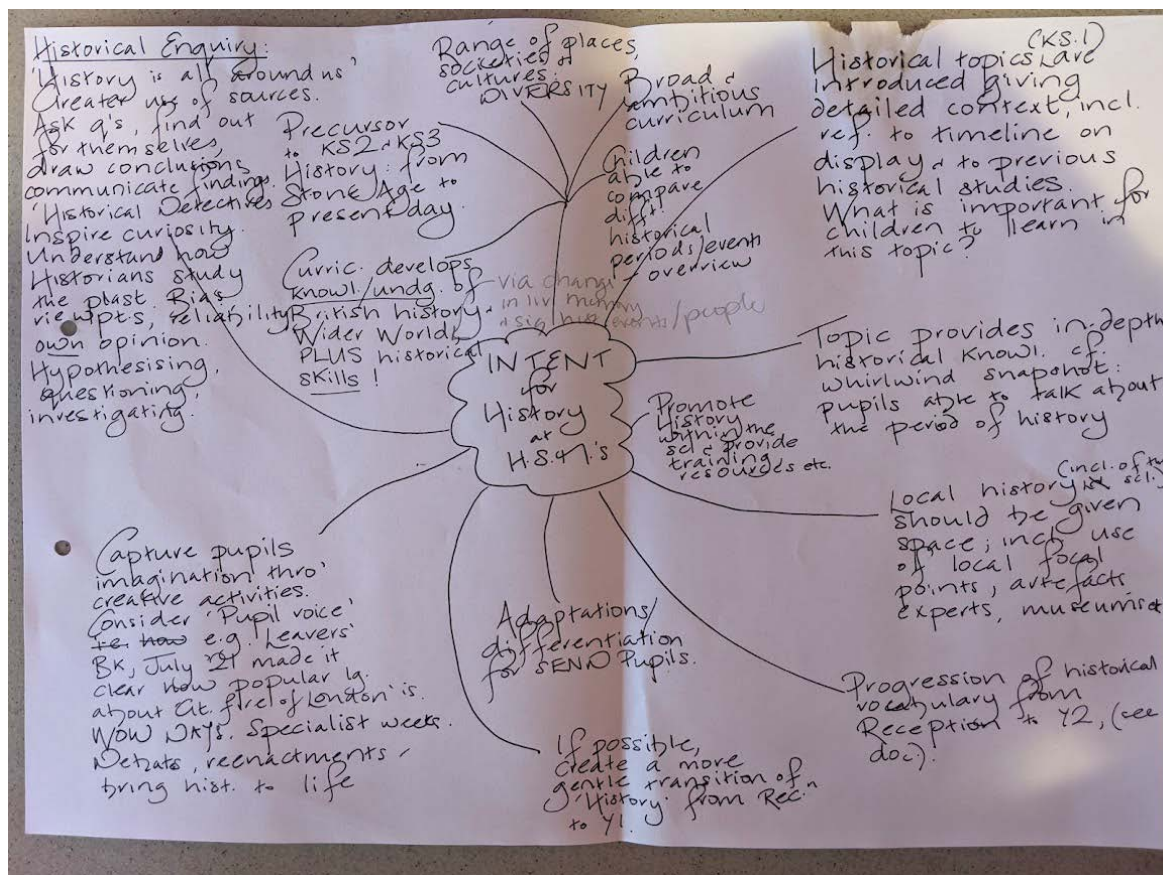 Historical Enquiry:
'History is all around us'
Greater use of sources.
Ask q's, find out
for themselves,
draw conclusions
communicate findings.
'Historical Detectives'
Inspire curiosity.
Understand how
Historians study
the past. Bias
viewpts, reliability
own opinion.
Hypothesising,
questioning,
investigating.
Precursor
to KS2 & KS3
History: from
Stone Age to
present day.
Range of places,
societies &
cultures:
DIVERSITY
Broad &
ambitious
curriculum
Children
able to
compare
difft
historical
periods/events
- overview
Curric. develops
knowl/undg. of
British history &
Wider World,
PLUS historical
skills!
- via change
in liv. memory
& sig. events/people
(KS.1)
Historical topics are
introduced giving
detailed context, incl.
ref. to timeline on
display & to previous
historical studies.
What is important for
children to learn in
this topic?
INTENT
for
History
at
H.S.
Topic provides in-depth
historical knowl. cf.
whirlwind snapshot:
pupils able to talk about
the period of history
Promote
History
within the
scl & provide
training
resources etc.
(incl. of
scl.)
Local history
should be given
space; incl. use
of local focal
points, artefacts
experts, museums
Progression of historical
vocabulary from
Reception to Y2, (see
doc).
Adaptations/
differentiation
for SEND Pupils.
If possible,
create a more
gentle transition of
'History' from Rec.n
to Y1.
Capture pupils
imagination thro'
creative activities.
Consider 'Pupil voice'
i.e. how e.g. Leavers'
Bk, July '21 made it
clear how popular lg.
about 'Gt. fire of London' is.
WOW DAYS. Specialist weeks.
Debats, reenactments,
bring hist. to life